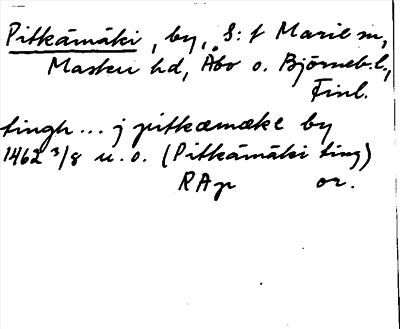 Pitkämäki, by, S:t Marie sn,
Masku hd, Åbo o. Björneb.l,
Finl.
tingh... j pitkæmækæ by
1462 3/8 u.o. (Pitkämäki ting)
RAp or.